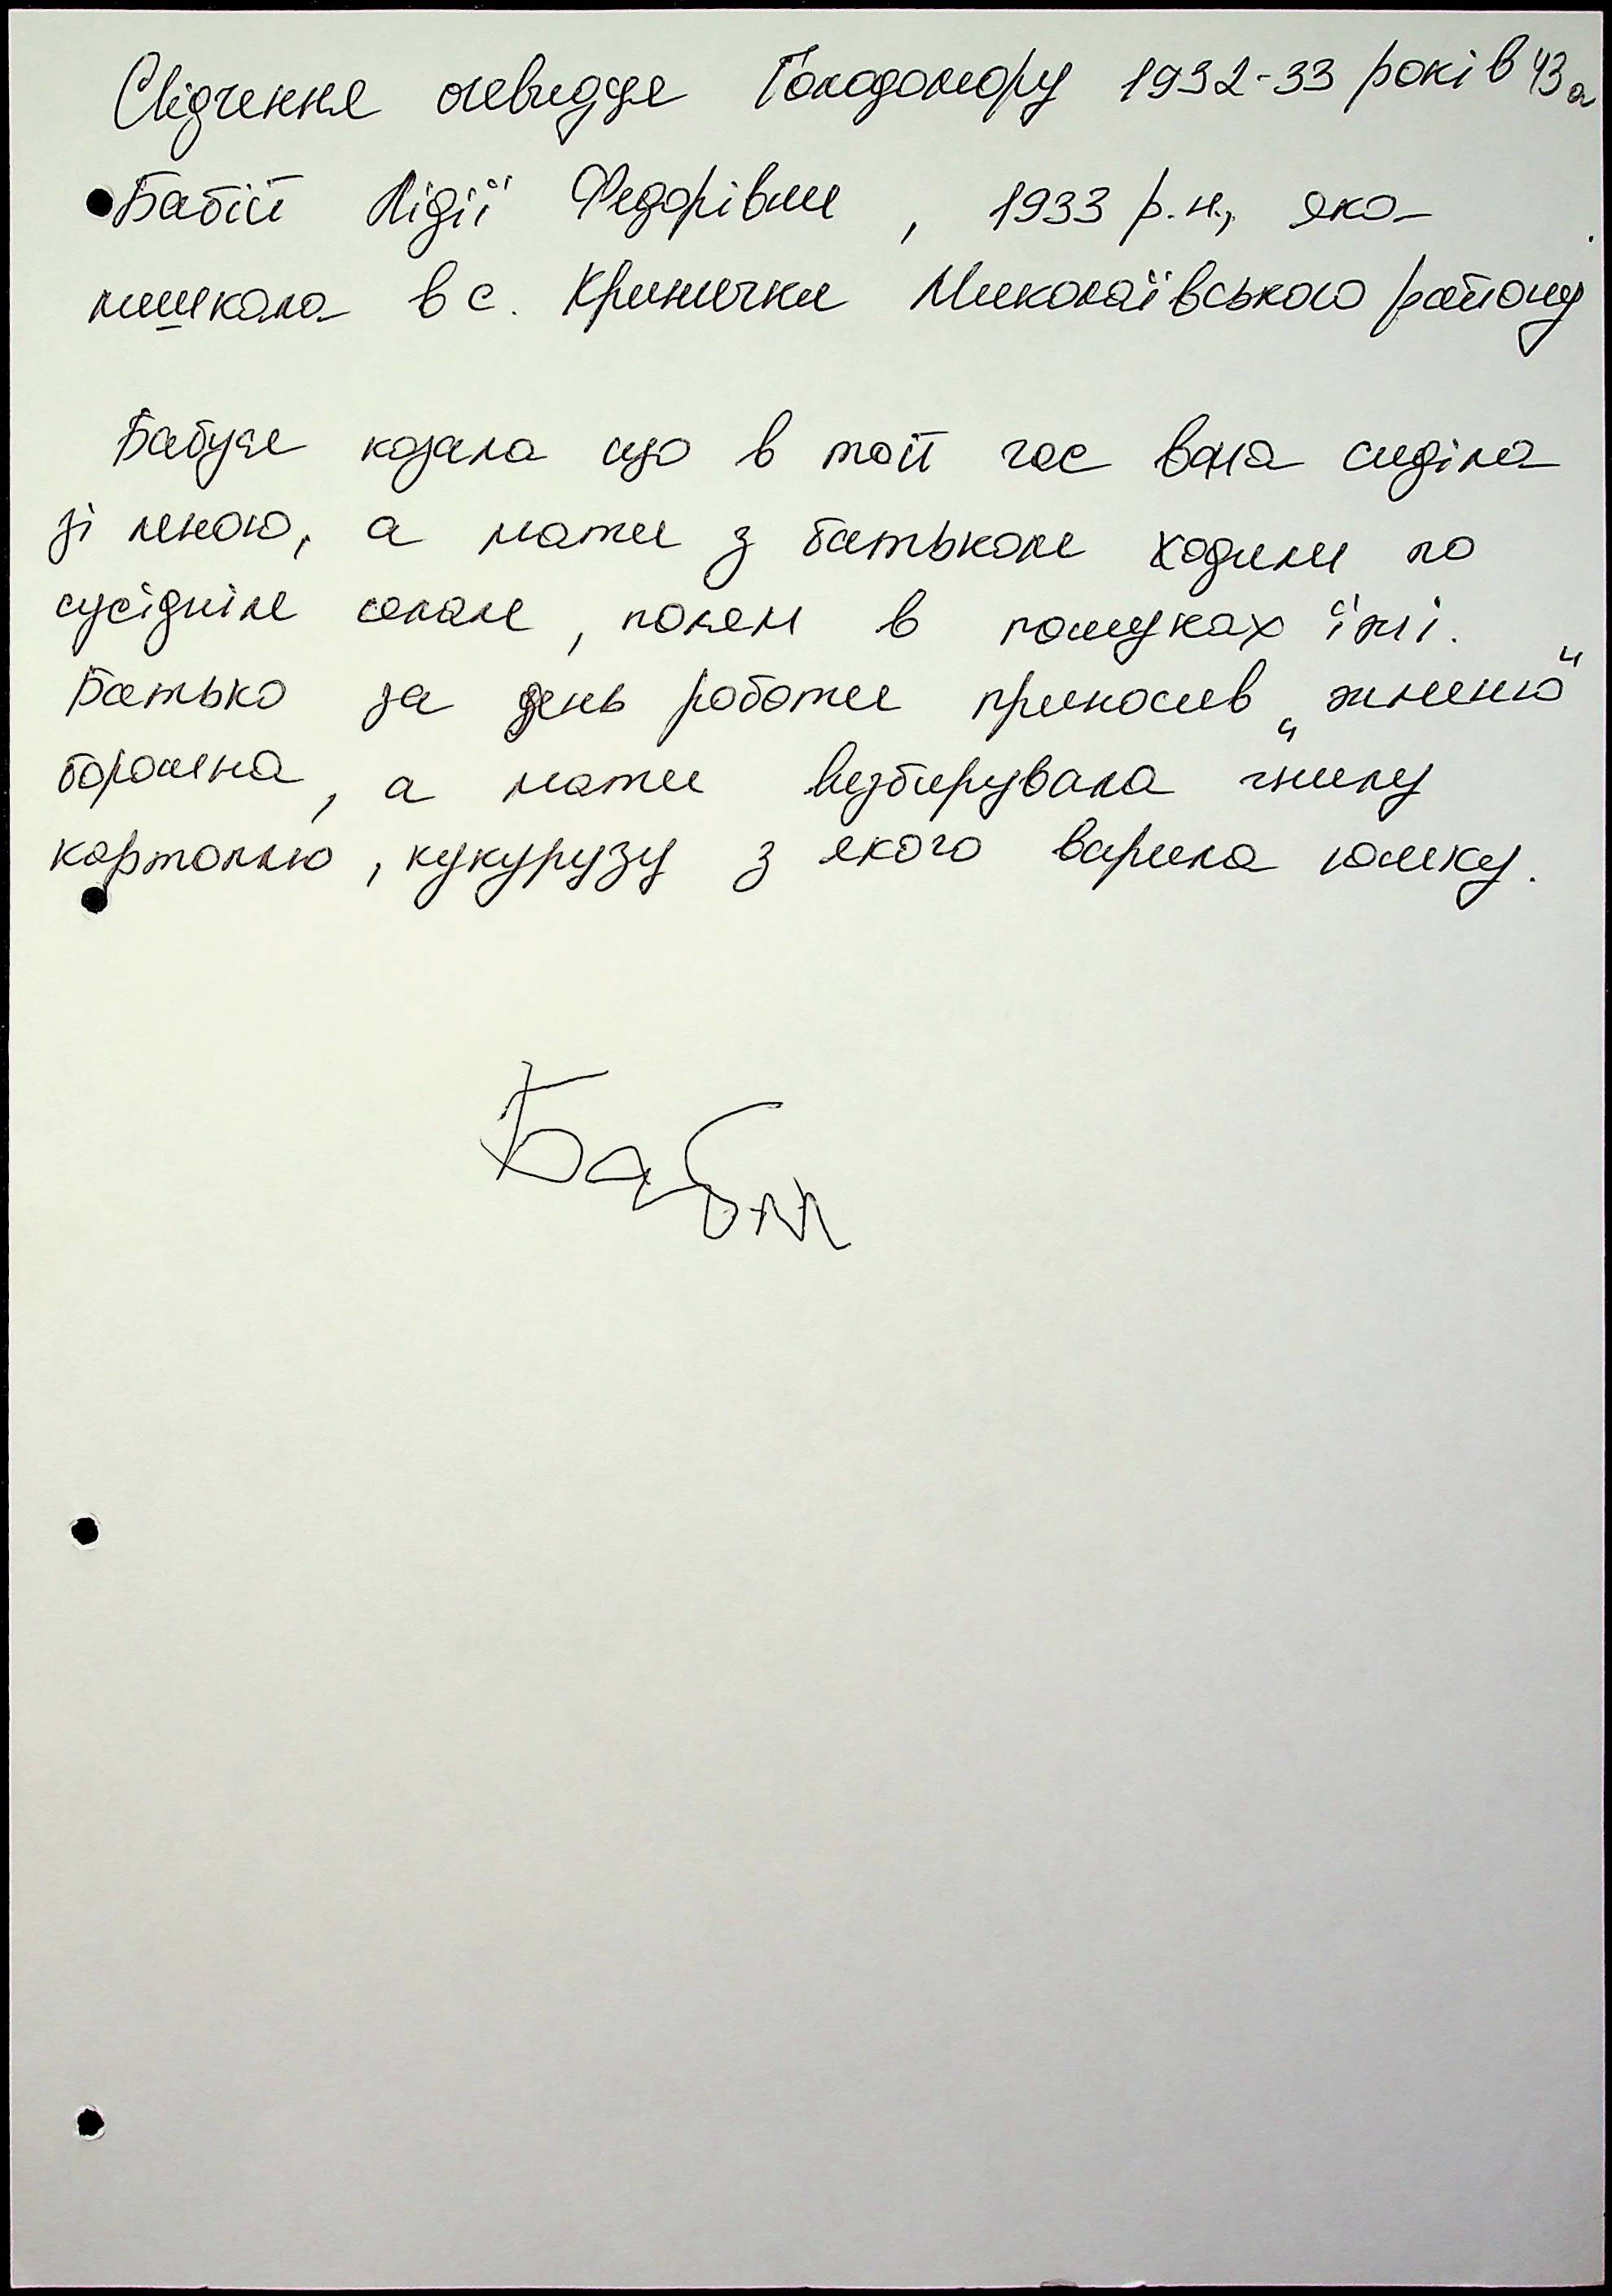 Свідчення очевидця Голодомору 1932-33 років 43а
Бабій Лідії Федорівни, 1933 р.н., яка
мешкала в с. Кринички Миколаївського району
Бабуся казала що в той час вона сиділа
зі мною, а мати з батьком ходили по
сусіднім селам, полям в пошуках їжі.
Батько за день роботи приносив „жменю"
борошна, а мати визбирувала гнилу
картоплю, кукурузу з якого варила юшку.
Бабій